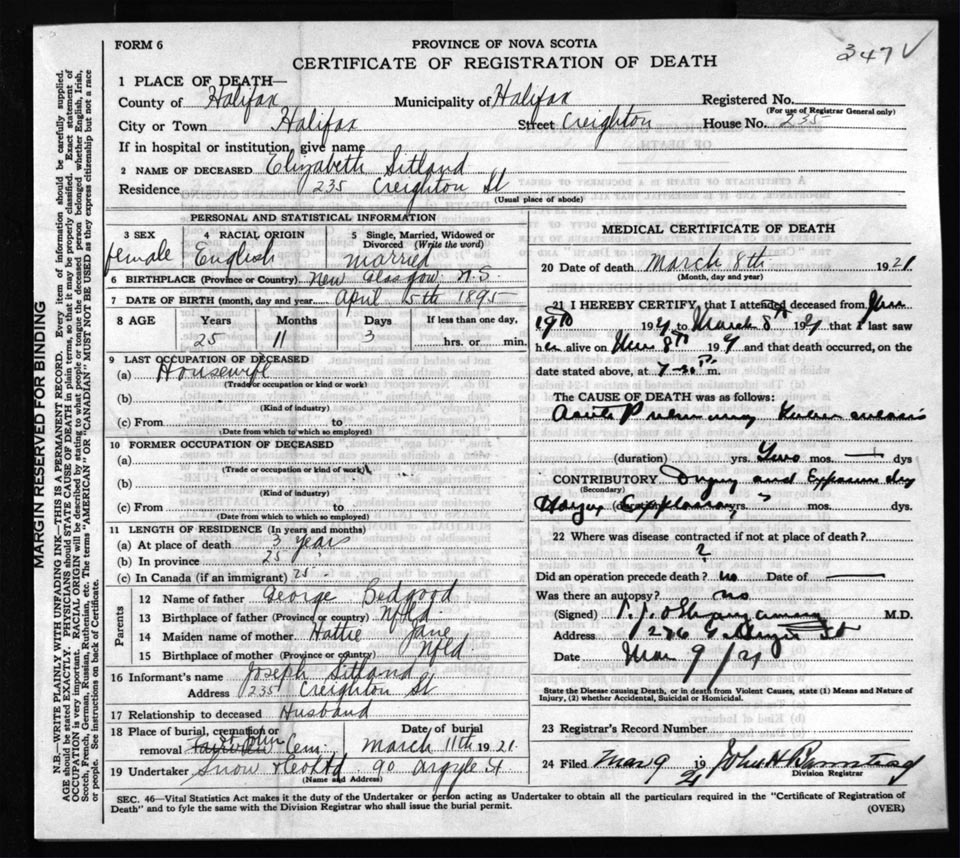 347 V
FORM 6
PROVINCE OF NOVA SCOTIA
CERTIFICATE OF REGISTRATION OF DEATH
1 PLACE OF DEATH—
County of Halifax Municipality of Halifax Registered No.
(For use of Registrar General only)
City or Town Halifax Street Creighton House No. 235
If in hospital or institution, give name
2 NAME OF DECEASED Elizabeth Sitland
Residence 235 Creighton St
(Usual place of abode)
PERSONAL AND STATISTICAL INFORMATION
3 SEX female
4 RACIAL ORIGIN English
5 Single, Married, Widowed or Divorced (Write the word) married
6 BIRTHPLACE (Province or Country) New Glasgow N.S
7 DATE OF BIRTH (month, day and year) April 5th 1895
8 AGE Years Months Days If less than one day,
25 11 3 hrs. or min.
9 LAST OCCUPATION OF DECEASED
(a) Housewife
(Trade or occupation or kind or work)
(b)
(Kind of industry)
(c) From to
(Date from which to which so employed)
10 FORMER OCCUPATION OF DECEASED
(a)
(Trade or occupation or kind of work)
(b)
(Kind of industry)
(c) From to
(Date from which to which so employed)
11 LENGTH OF RESIDENCE (In years and months)
(a) At place of death 3 years
(b) In province 25 "
(c) In Canada (if an immigrant) 25
Parents
12 Name of father George Bedgood
13 Birthplace of father (Province or country) Nfld
14 Maiden name of mother Hattie Jane
15 Birthplace of mother (Province or Country) Nfld
16 Informant's name Joseph Sitland
Address 235 Creighton St
17 Relationship to deceased Husband
18 Place of burial, cremation or removal St John Cem Date of burial March 11th 1921
19 Undertaker Snow & Co Ltd 90 Argyle St
(Name and Address)
MEDICAL CERTIFICATE OF DEATH
20 Date of death March 8th 1921
(Month, day and year)
21 I HEREBY CERTIFY, that I attended deceased from
192 to March 8th 1921 that I last saw
her alive on Mar 8th 1921 and that death occurred, on the
date stated above, at 7-30 P. m.
The CAUSE OF DEATH was as follows:
Acute Pulmonary Tuberculosis
(duration) yrs. Two mos. — dys
CONTRIBUTORY Injury and Exposure
(Secondary)
Explosion (duration) yrs. mos. dys.
22 Where was disease contracted if not at place of death?
?
Did an operation precede death? no Date of —
Was there an autopsy? no
(Signed) M.D.
Address St
Date Mar 9 /21
State the Disease causing Death, or in death from Violent Causes, state (1) Means and Nature of
Injury, (2) whether Accidental, Suicidal or Homicidal.
23 Registrar's Record Number
24 Filed Mar 9 1921 John H
Division Registrar
SEC. 46—Vital Statistics Act makes it the duty of the Undertaker or person acting as Undertaker to obtain all the particulars required in the "Certificate of Registration of
Death" and to fyle the same with the Division Registrar who shall issue the burial permit.
(OVER)
MARGIN RESERVED FOR BINDING
N.B.—WRITE PLAINLY WITH UNFADING INK—THIS IS A PERMANENT RECORD. Every item of information should be carefully supplied.
AGE should be stated EXACTLY. PHYSICIANS should STATE CAUSE OF DEATH in plain terms, so that it may be properly classified. Exact statement of
OCCUPATION is very important. RACIAL ORIGIN will be described by stating to what people or tongue the deceased person belonged whether English, Irish,
Scotch, French, German, Russian, Ruthenian, etc. The terms "AMERICAN" OR "CANADIAN" MUST NOT BE USED as they express citizenship but not a race
or people. See instructions on back of Certificate.